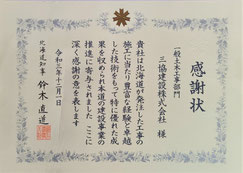 感謝状
一般土木工事部門
三協建設株式会社 様
貴社は北海道が発注した工事の
施工に当たり豊富な経験と卓越
した技術をもって特に優れた成
果を収められ本道の建設事業の
推進に寄与されました ここに
深く感謝の意を表します
令和三年十二月一日
北海道知事 鈴木直道